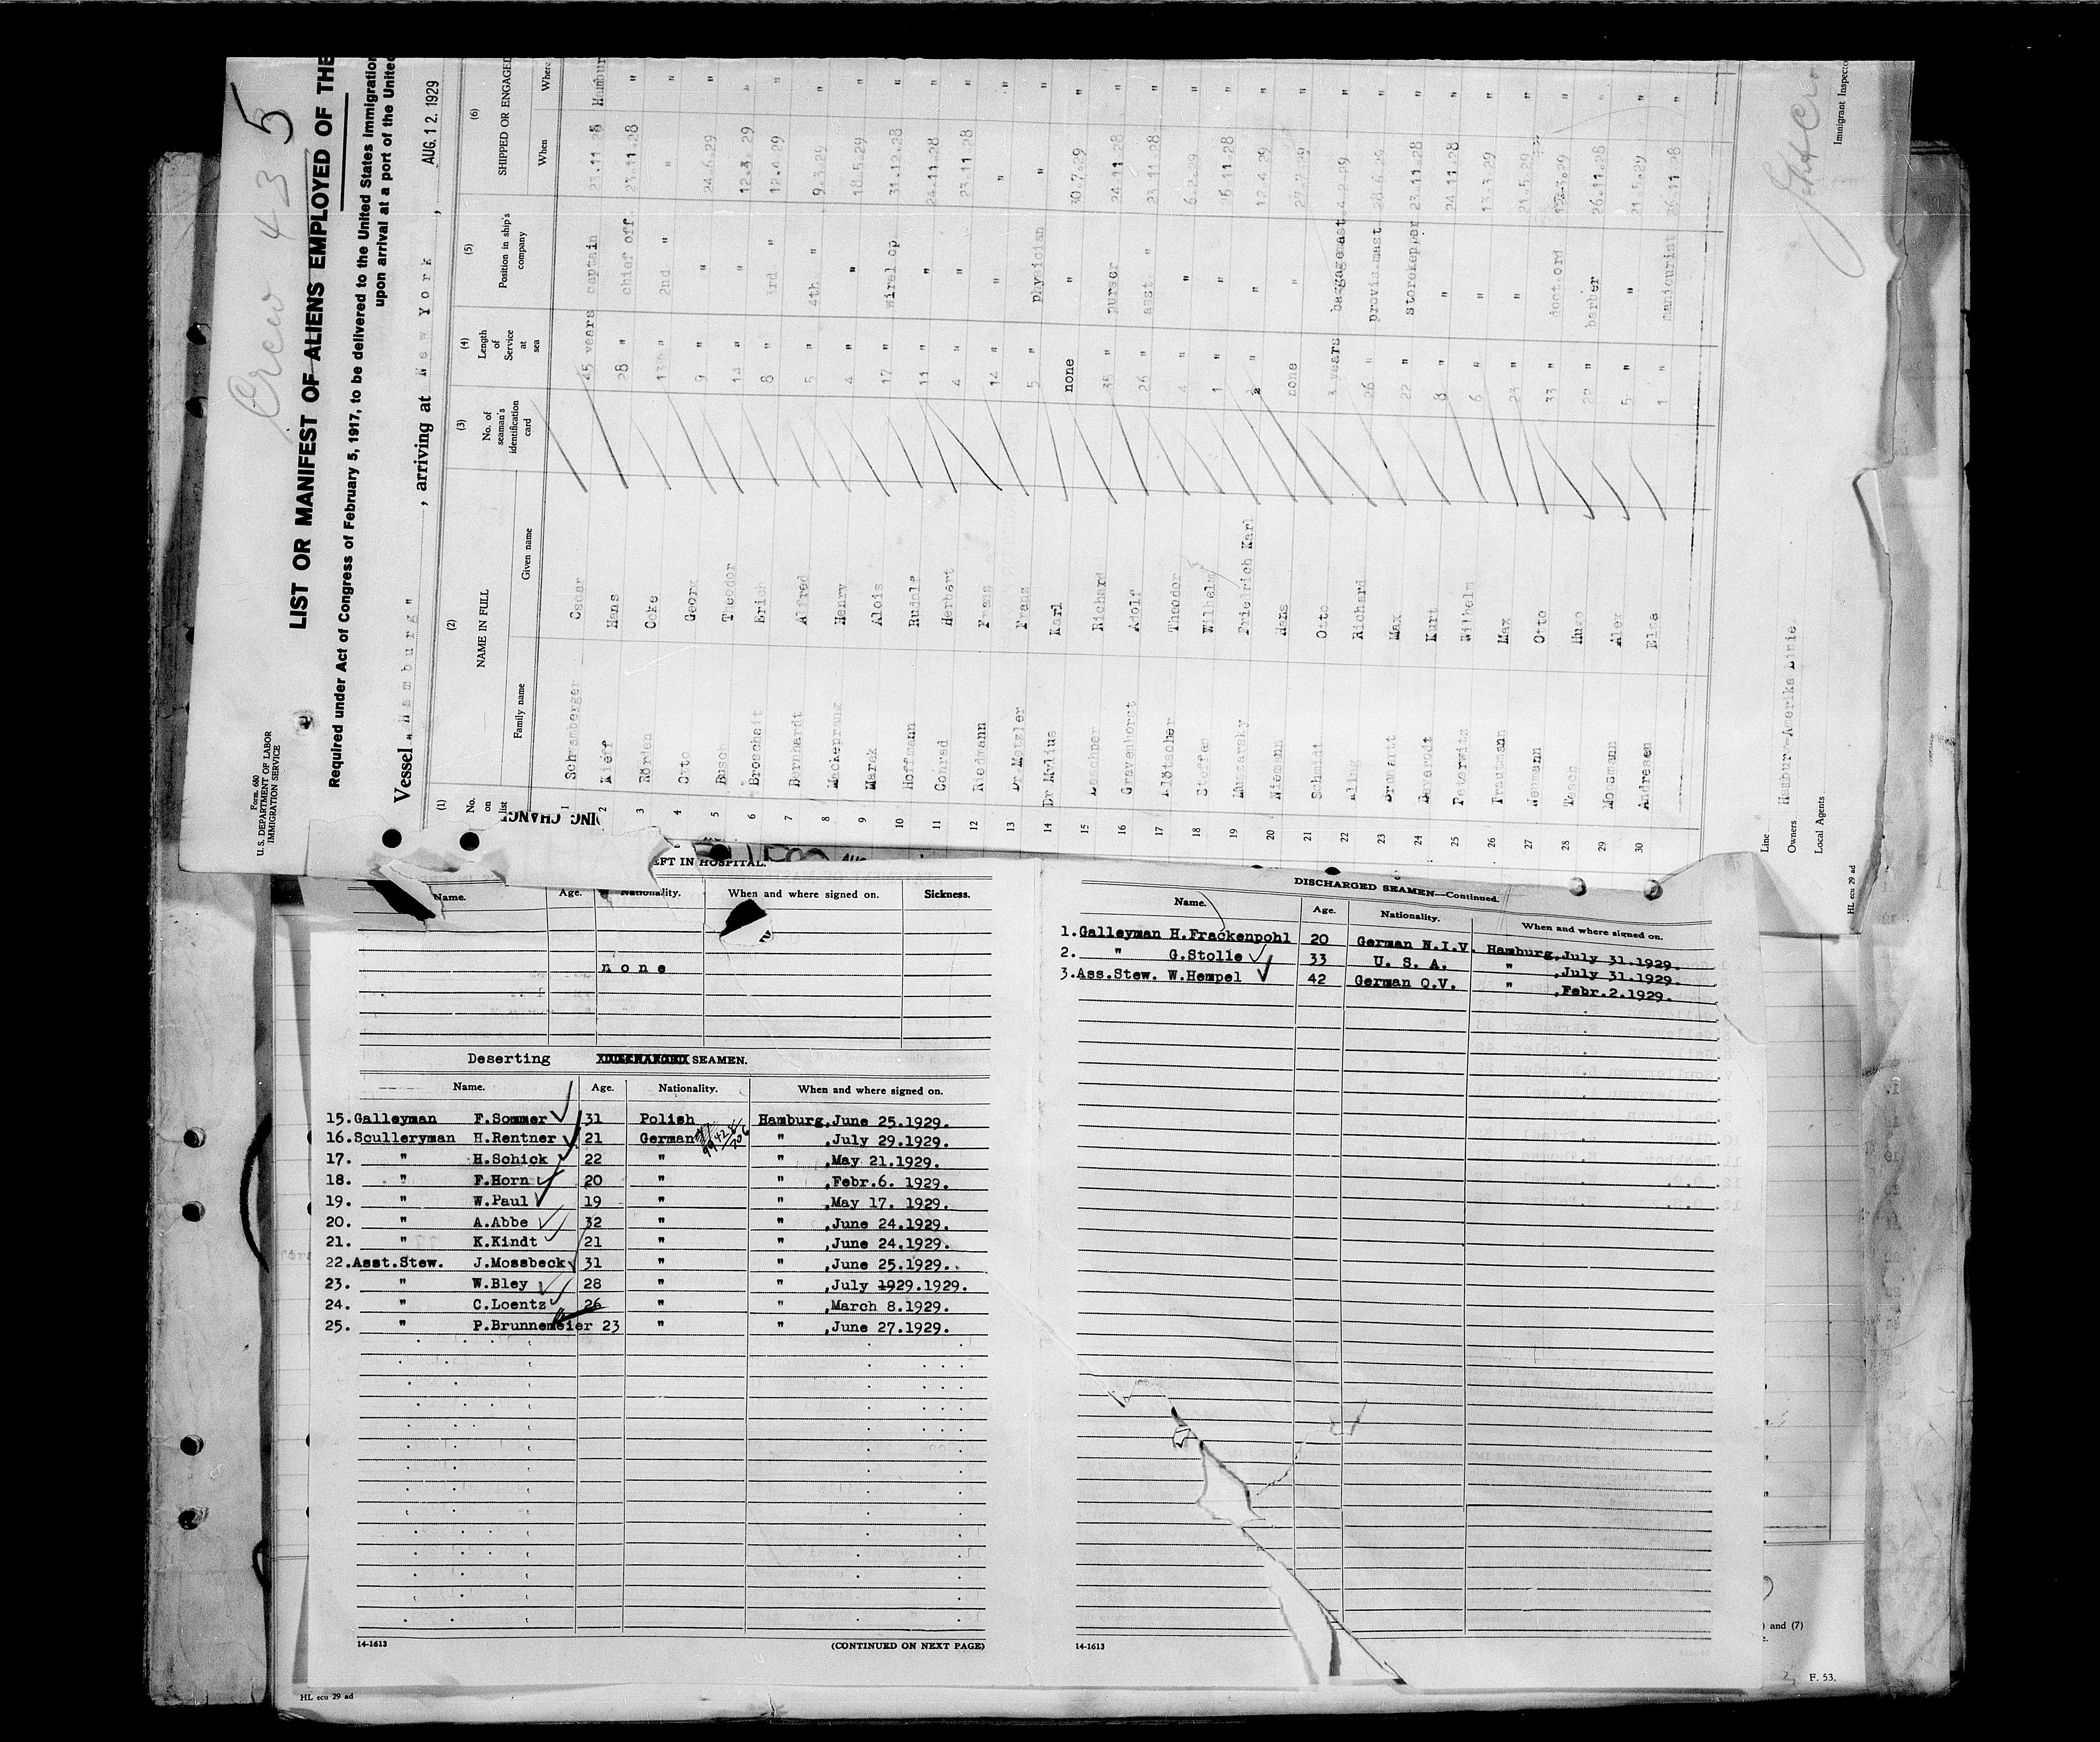 Crew 435
LIST OR MANIFEST OF ALIENS EMPLOYED OF THE
Required under Act of Congress of February 5, 1917, to be delivered to the United States immigration
upon arrival at a port of the United
Form 680
U. S. DEPARTMENT OF LABOR
IMMIGRATION SERVICE
Vessel "Hamburg" , arriving at New York , AUG. 12. 1929
(1) (2) (3) (4) (5) (6)
No. on list NAME IN FULL No. of seaman's identification card Length of Service at sea Position in ship's company SHIPPED OR ENGAGED
Family name Given name When Where
1 Schramberger Oscar 45 years captain 23.11.28 Hambur
2 Kieff Hans 28 " chief off 23.11.28 "
3 Rörden Cocke 13 " 2nd " " "
4 Otto Georg 9 " " 24.6.29 "
5 Busch Theodor 14 " " 12.3.29 "
6 Broscheit Erich 8 " 3rd " 12.4.29 "
7 Bernhardt Alfred 5 " 4th " 9.3.29 "
8 Mackeprang Henry 4 " " 18.5.29 "
9 Marek Alois 17 " wirel op 31.12.28 "
10 Hoffmann Rudolf 11 " " 24.11.28 "
11 Conrad Herbert 4 " " 23.11.28 "
12 Redmann Franz 14 " " " "
13 Dr Metzler Franz 5 " physician " "
14 Dr Mylius Karl none " 30.7.29 "
15 Richard 35 " purser 24.11.28 "
16 Gravenhorst Adolf 26 " asst " 23.11.28 "
17 Klötscher Theodor 4 " " 6.2.29 "
18 Steffen Wilhelm 1 " " 26.11.28 "
19 Friedrich Karl " " 12.4.29 "
20 Niemann Hans none " 27.7.29 "
21 Schmidt Otto 3 years baggagemast. 4.2.29 "
22 Kling Richard 26 " provis.mast 28.6.29 "
23 Max 22 " storekepper 23.11.28 "
24 Kurt 8 " " 24.11.28 "
25 Peterwitz Wilhelm 6 " " 13.3.29 "
26 Trautmann Max 23 " " 21.5.29 "
27 Neumann Otto 33 "
28 Tesch Hugo 22 " barber 26.11.28 "
29 Mossmann Alex 5 " " 21.5.29 "
30 Andresen Elsa 1 " manicurist 26.11.28 "
Line
Owners Hamburg-Amerika Linie
Local Agents
Immigrant Inspector
HL ecu 29 ad
EFT IN HOSPITAL.
Name. Age. Nationality. When and where signed on. Sickness.
none
Deserting DISCHARGED SEAMEN.
Name. Age. Nationality. When and where signed on.
15. Galleyman F.Sommer 31 Polish Hamburg,June 25.1929.
16. Sculleryman H.Rentner 21 German " ,July 29.1929.
17. " H.Schick 22 " " ,May 21.1929.
18. " F.Horn 20 " " ,Febr.6. 1929.
19. " W.Paul 19 " " ,May 17. 1929.
20. " A.Abbe 32 " " ,June 24.1929.
21. " K.Kindt 21 " " ,June 24.1929.
22. Asst.Stew. J.Mossbeck 31 " " ,June 25.1929.
23. " W.Bley 28 " " ,July 1929.1929.
24. " C.Loentz 26 " " ,March 8.1929.
25. " P.Brunnemeier 23 " " ,June 27.1929.
14-1613 (CONTINUED ON NEXT PAGE)
HL ecu 29 ad
DISCHARGED SEAMEN—Continued.
Name. Age. Nationality. When and where signed on.
1. Galleyman H.Frackenpohl 20 German N.I.V. Hamburg,July 31.1929.
2. " G.Stolle 33 U. S. A. " ,July 31.1929.
3. Ass.Stew. W.Hempel 42 German Q.V. " ,Febr.2.1929.
14-1613
) and (7)
F. 53.